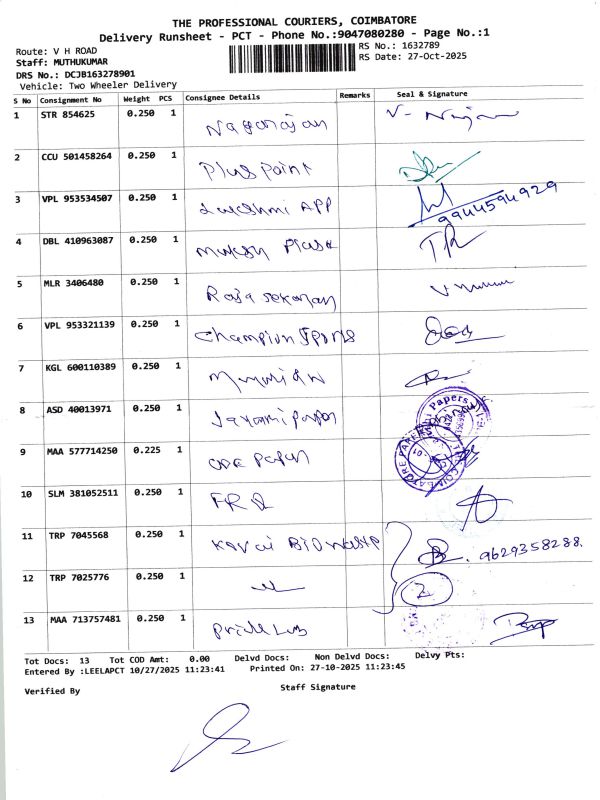 THE PROFESSIONAL COURIERS, COIMBATORE
Delivery Runsheet - PCT - Phone No.:9047080280 - Page No.:1
Route: V H ROAD
RS No.: 1632789
Staff: MUTHUKUMAR
RS Date: 27-Oct-2025
DRS No.: DCJB163278901
Vehicle: Two Wheeler Delivery
S No Consignment No Weight PCS Consignee Details Remarks Seal & Signature
1 STR 854625 0.250 1 Nagarajan
2 CCU 501458264 0.250 1 Plus Point
3 VPL 953534507 0.250 1 Lakshmi APP 9944594929
4 DBL 410963087 0.250 1
5 MLR 3406480 0.250 1 Rajasekaran
6 VPL 953321139 0.250 1 Champion Sports
7 KGL 600110389 0.250 1
8 ASD 40013971 0.250 1
9 MAA 577714250 0.225 1
10 SLM 381052511 0.250 1
11 TRP 7045568 0.250 1 9629358288.
12 TRP 7025776 0.250 1 2
13 MAA 713757481 0.250 1
Tot Docs: 13 Tot COD Amt: 0.00 Delvd Docs: Non Delvd Docs: Delvy Pts:
Entered By :LEELAPCT 10/27/2025 11:23:41 Printed On: 27-10-2025 11:23:45
Verified By Staff Signature